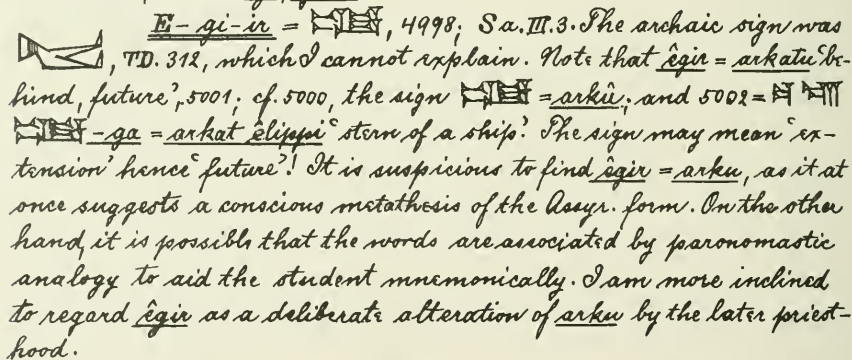 E-gi-ir = , 4998; Sa.III.3. The archaic sign was
, TD. 312, which I cannot explain. Note that êgir = arkatu 'be-
hind, future', 5001; cf. 5000, the sign = arkû; and 5002 =
-ga = arkat êlippi 'stern of a ship'. The sign may mean 'ex-
tension' hence 'future'! It is suspicious to find êgir = arku, as it at
once suggests a conscious metathesis of the Assyr. form. On the other
hand, it is possible that the words are associated by paronomastic
analogy to aid the student mnemonically. I am more inclined
to regard êgir as a deliberate alteration of arku by the later priest-
hood.